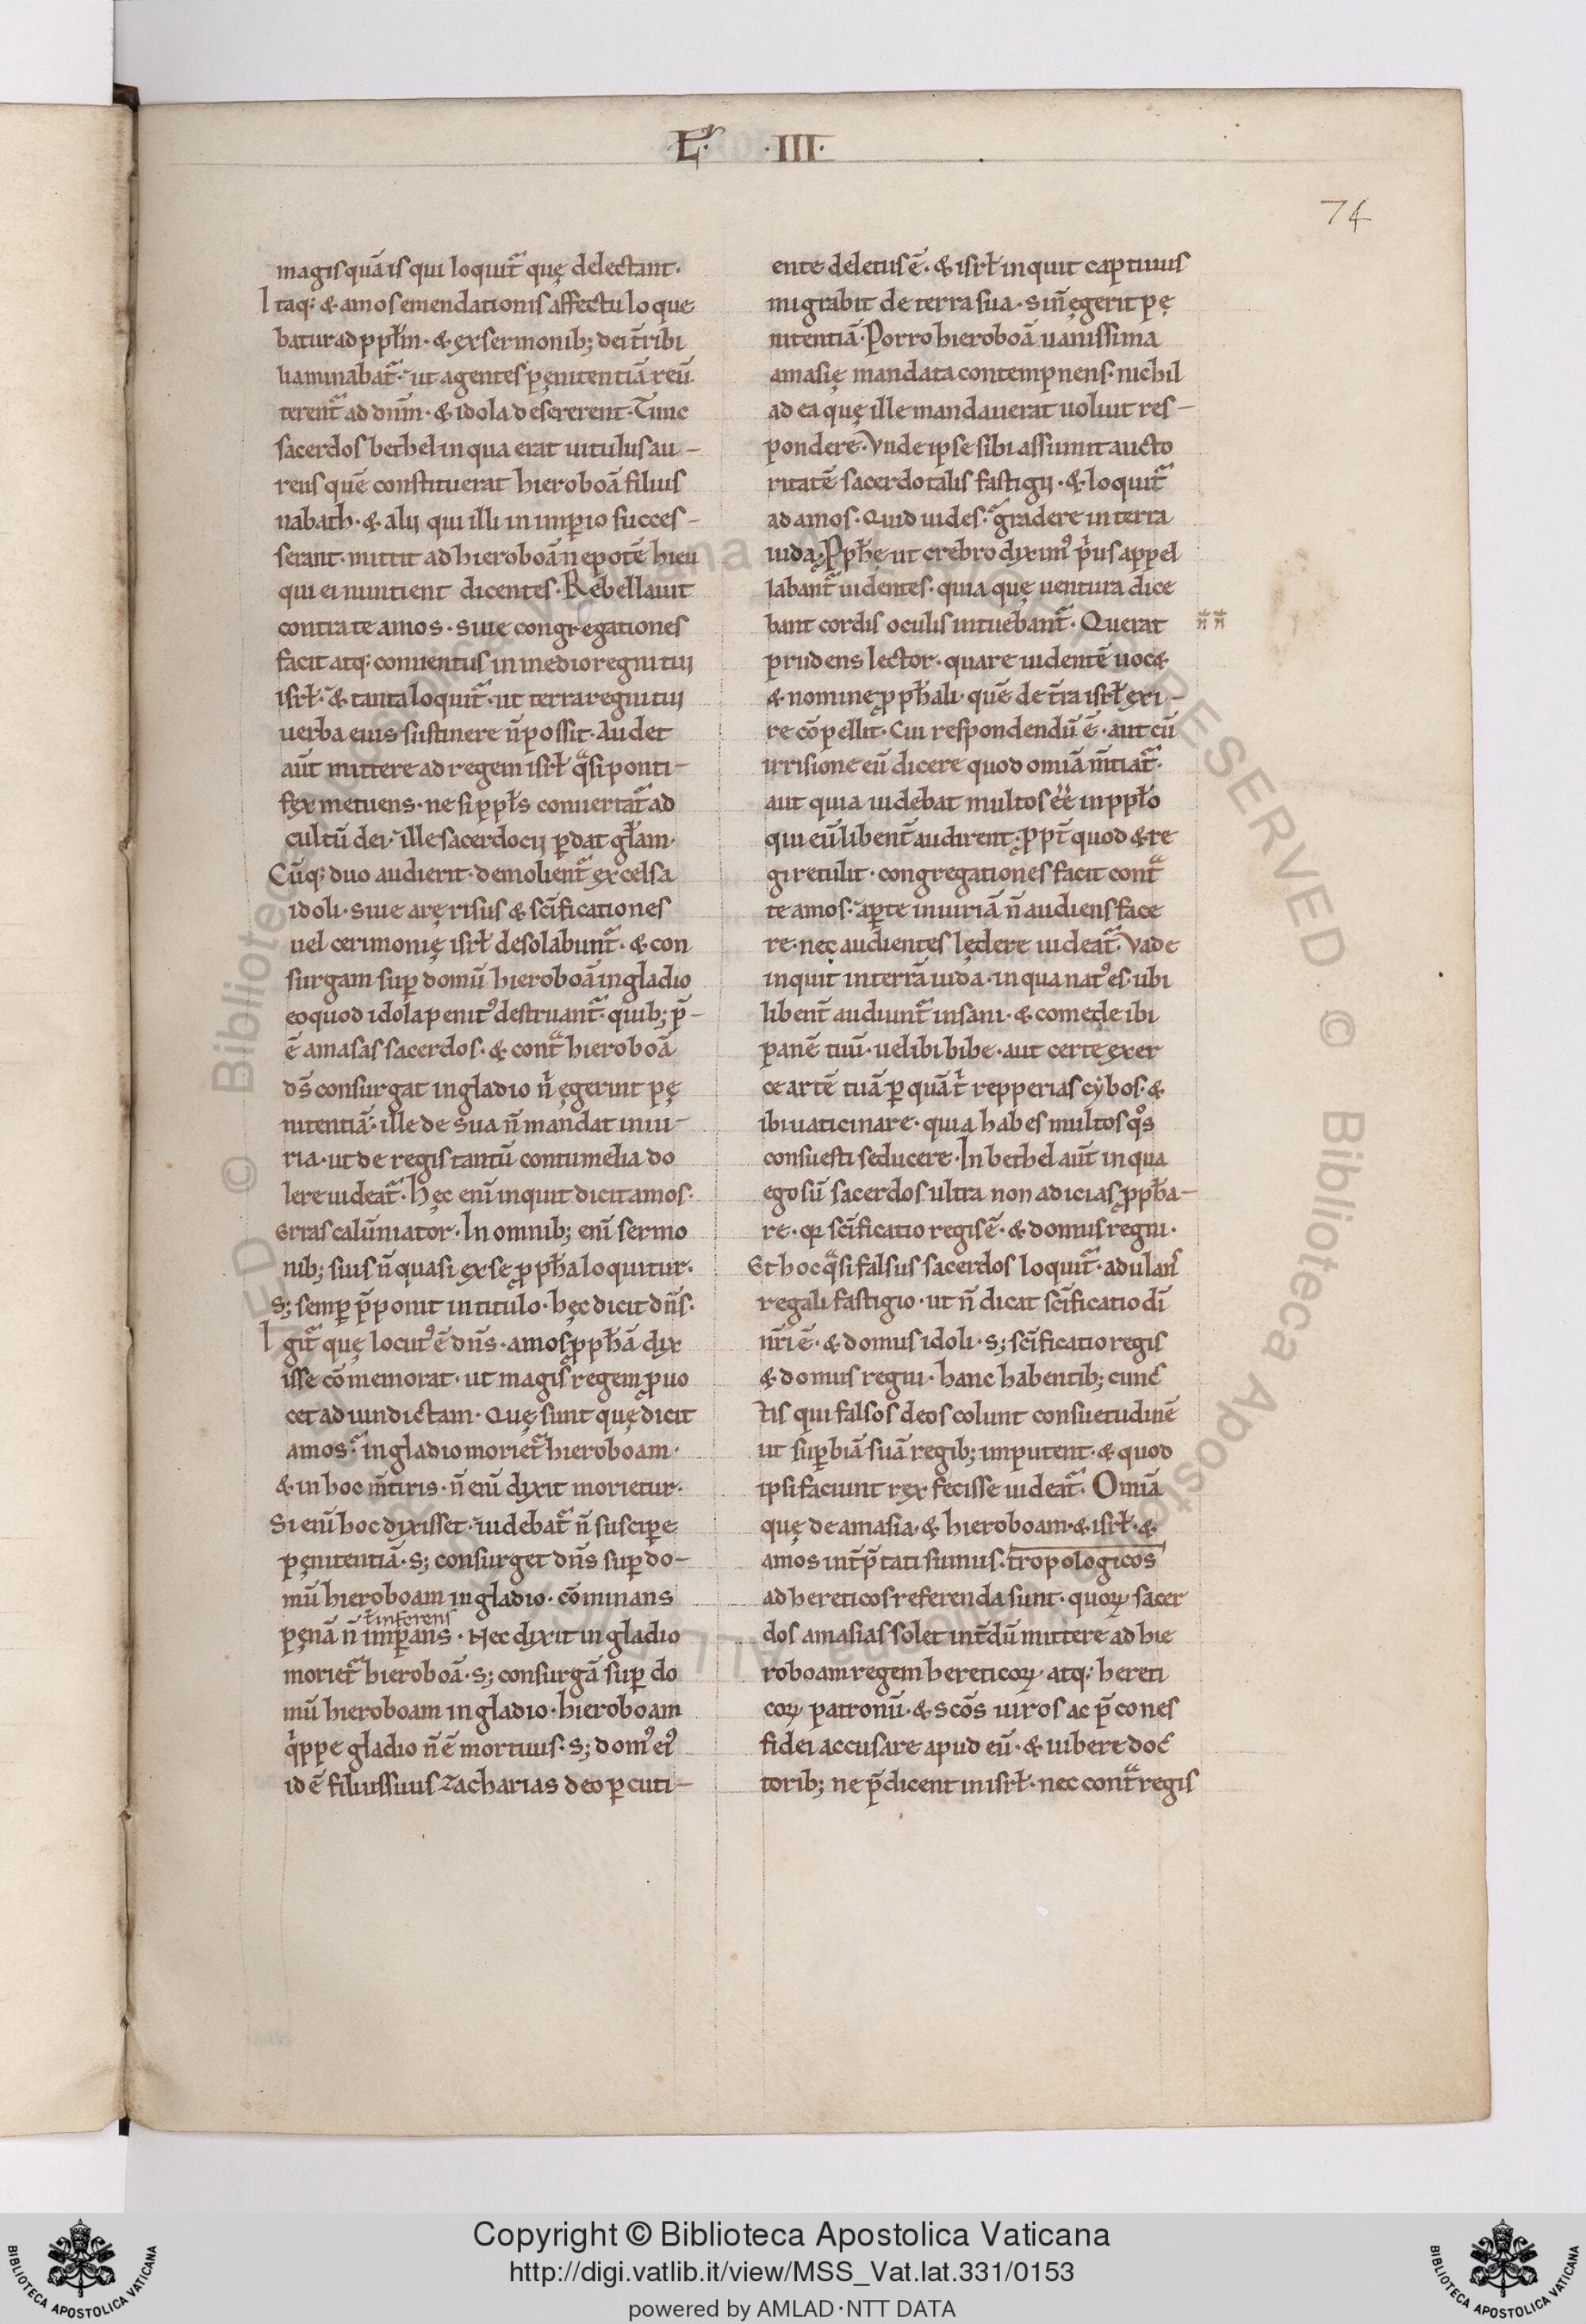 L̃. ·III·
74
magis quā is qui loquit᷑ quę delectant·
Itaq; & amos emendationis affectu loque
batur ad pplm̄· & ex sermonib; dei t̄ribi
liaminabat᷑· ut agentes pęnitentiā reū
terent᷑ ad dn̄m· & idola desererent· Tunc
sacerdos bethel in qua erat uitulus au-
reus quē constituerat hieroboā filius
nabath· & alij qui illi in imꝑio succes-
serant· mittit ad hieroboā nepotē hieu
qui ei nuntient dicentes· Rebellauit
contra te amos· siue congregationes
facit atq; conuentus in medio regni tui
isrł· & tanta loquit᷑· ut terra regni tui
uerba eius sustinere n̄ possit· Audet
aūt mittere ad regem isrł qͣsi ponti-
fex metuens· ne si ppłs conuertat᷑ ad
cultū dei· ille sacerdocij ꝑdat głam·
Cūq; duo audierit· demolient᷑ excelsa
idoli· siue arę risus & sc̄ificationes
uel cerimonię isrł desolabunt᷑· & con
surgam suꝑ domū hieroboā in gladio
eo quod idola penitꝰ destruant᷑· quib; p̄-
ē amasias sacerdos· & contͣ hieroboā
ds̄ consurgat in gladio nͥ egerint pę
nitentiā· ille de sua n̄ mandat iniu-
ria· ut de regis tantū contumelia do
lere uideat᷑· Hęc enī inquit dicit amos·
Erras calūniator· In omnib; enī sermo
nib; suis n̄ quasi ex se ꝓpħa loquitur·
S; semꝑ p̄ponit in titulo· hęc dicit dn̄s·
Igit᷑ quę locutꝰ ē dn̄s· amos ꝓpħā dix
isse cōmemorat· ut magis regem ꝓuo
cet ad iundictam· Quę sunt quę dicit
amos· in gladio moriet᷑ hieroboam·
& in hoc m̄tiris· n̄ enī dixit morietur·
Si enī hoc dixisset· uidebat᷑ n̄ susciꝑe
pęnitentiā· S; consurget dn̄s suꝑ do-
mū hieroboam in gladio· cōminans
ł inferens
pęnā n̄ imꝑans· Nec dixit in gladio
moriet᷑ hieroboā· S; consurgā suꝑ do
mū hieroboam in gladio· hieroboam
qͥppe gladio n̄ ē mortuus· S; domꝰ eiꝰ
id ē filius suus zacharias deo ꝑcuti-
ente deletus ē· & isrł inquit captiuus
migrabit de terra sua· si n̄ egerit pę
nitentiā· Porro hieroboā uanissima
amasię mandata contempnens· nichil
ad ea quę ille mandauerat uoluit res-
pondere· Vnde ipse sibi assumit aucto
ritatē sacerdotalis fastigij· & loquit᷑
ad amos· Qui uides· gradere in terrā
iuda· Ꝓpħę ut crebro diximꝰ pͥus appel
labant᷑ uidentes· quia quę uentura dice
bant cordis oculis intuebant᷑· Querat
prudens lector· quare uidentē uocet
& nomine ꝓpħali· quē de t̄ra isrł exi-
re cōpellit· Cui respondendū ē· aut cū
irrisione eū dicere quod om̄ia m̄tiat᷑·
aut quia uidebat multos ēē in ppło
qui eū libent̄ audirent· ꝓpt̄ quod & re
gi retulit· congregationes facit contͣ
te amos· aꝑte iniuriā n̄ audiens face
re· nec audientes lędere uideat᷑· Vade
inquit in terrā iuda· in qua natꝰ es· ubi
libent̄ audiunt᷑ insani· & comede ibi
panē tuū· uel ibi bibe· aut certe exer
ce artē tuā ꝑ quā tͥ repperias cybos· &
ibi uaticinare· quia habes multos qͦs
consuesti seducere· In bethel aūt in qua
ego sū sacerdos ultra non adicias ꝓpħa-
re· qꝛ sc̄ificatio regis ē· & domus regni·
Et hoc qͣsi falsus sacerdos loquit᷑· adulans
regali fastigio· ut n̄ dicat sc̄ificatio dī
nr̄i ē· & domus idoli· S; sc̄ificatio regis
& domus regni· hanc habentib; cunc
tis qui falsos deos colunt consuetudinē
ut suꝑbiā suā regib; imputent· & quod
ipsi faciunt rex fecisse uideat᷑· Om̄ia
quę de amasia· & hieroboam· & isrł· &
amos int̄p̄tati sumus· tropologicos
ad hereticos referenda sunt· quoꝝ sacer
dos amasias solet int̄dū mittere ad hie
roboam regem hereticoꝝ· atq; hereti
coꝝ patronū· & scōs uiros ac p̄cones
fidei accusare apud eū· & iubere doc
torib; ne p̄dicent in isrł· nec contͣ regis
Copyright © Biblioteca Apostolica Vaticana
http://digi.vatlib.it/view/MSS_Vat.lat.331/0153
powered by AMLAD·NTT DATA
BIBLIOTECA APOSTOLICA VATICANA
BIBLIOTECA APOSTOLICA VATICANA